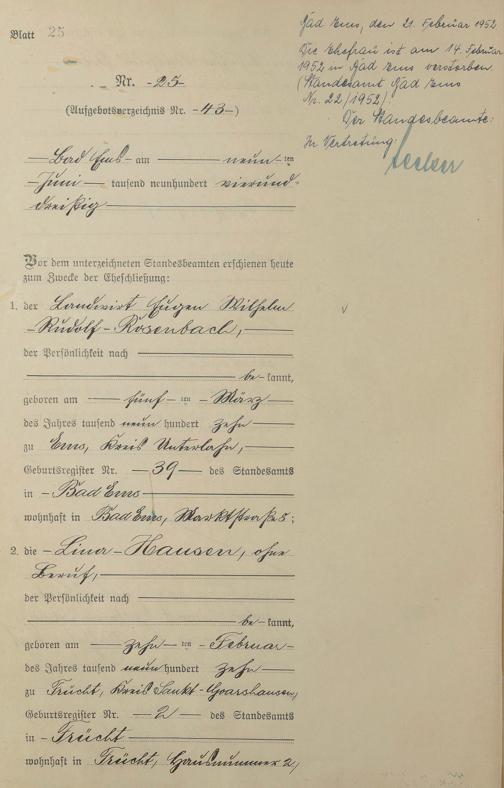 Blatt 25
Bad Ems, den 21. Februar 1952
Die Ehefrau ist am 14. Februar
1952 in Bad Ems verstorben.
(Standesamt Bad Ems
Nr. 22/1952).
Der Standesbeamte:
In Vertretung:
Nr. -25-
(Aufgebotsverzeichnis Nr. -43-)
Bad Ems - am neun ten
Juni tausend neunhundert vierund-
dreißig
Vor dem unterzeichneten Standesbeamten erschienen heute
zum Zwecke der Eheschließung:
1. der Landwirt Eugen Wilhelm
Rudolf - Rosenbach,
der Persönlichkeit nach
be-kannt,
geboren am fünf ten März
des Jahres tausend neun hundert zehn
zu Ems, Kreis Unterlahn,
Geburtsregister Nr. 39 des Standesamts
in Bad Ems
wohnhaft in Bad Ems, Marktstraße 8;
2. die - Lina - Hausen, ohne
Beruf,
der Persönlichkeit nach
be-kannt,
geboren am zehn ten Februar
des Jahres tausend neun hundert zehn
zu Frücht, Kreis Sankt-Goarshausen,
Geburtsregister Nr. 2 des Standesamts
in - Frücht
wohnhaft in Frücht, Hausnummer 2,